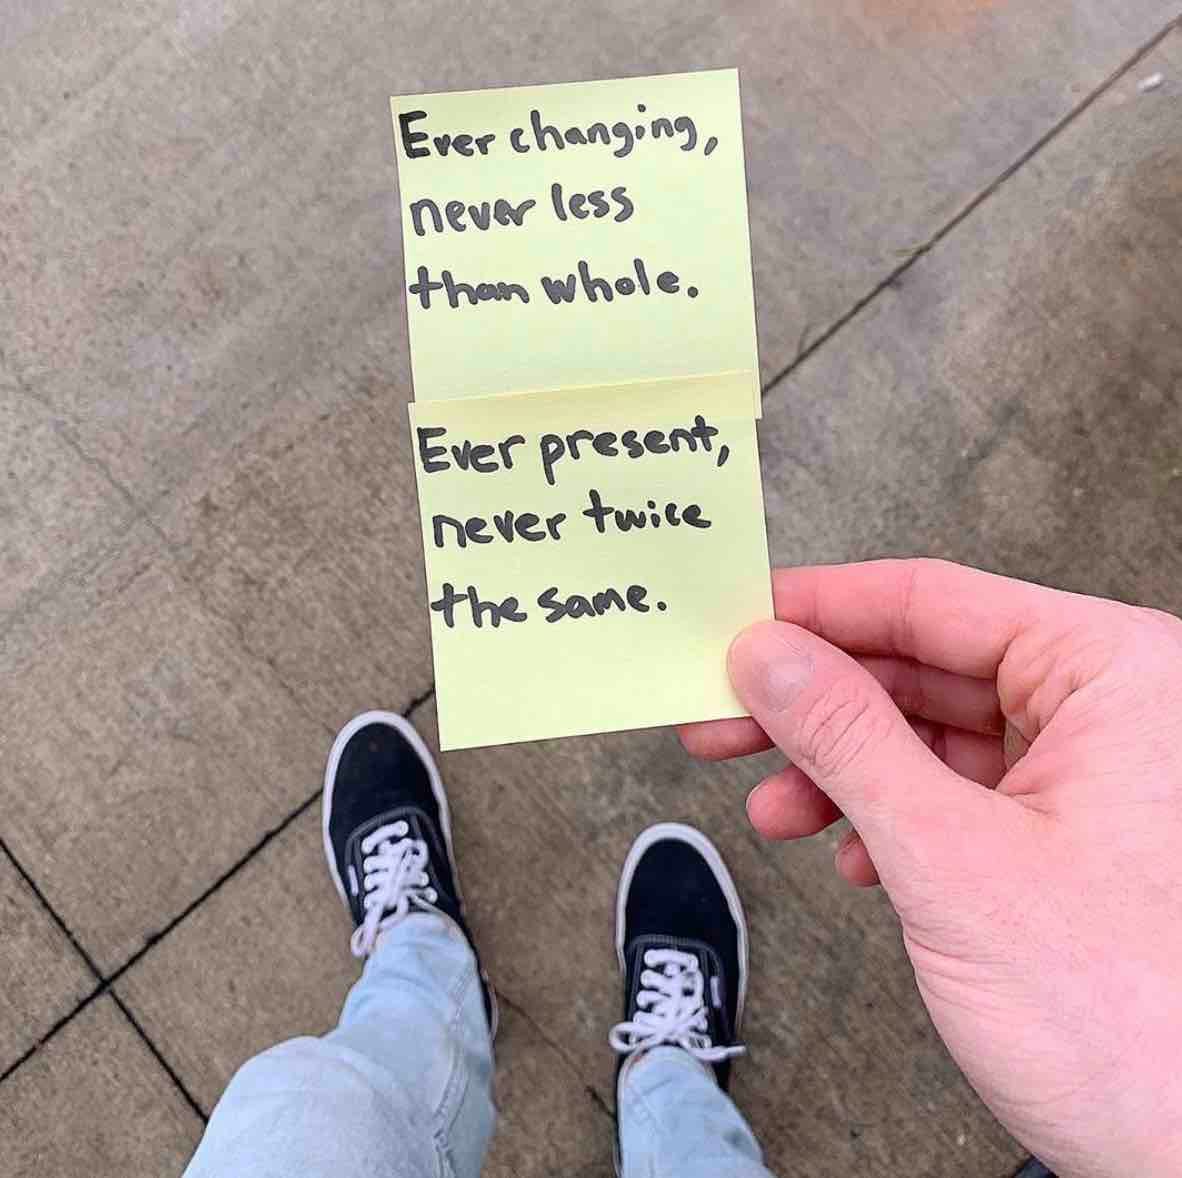 Ever changing,
never less
than whole.
Ever present,
never twice
the same.